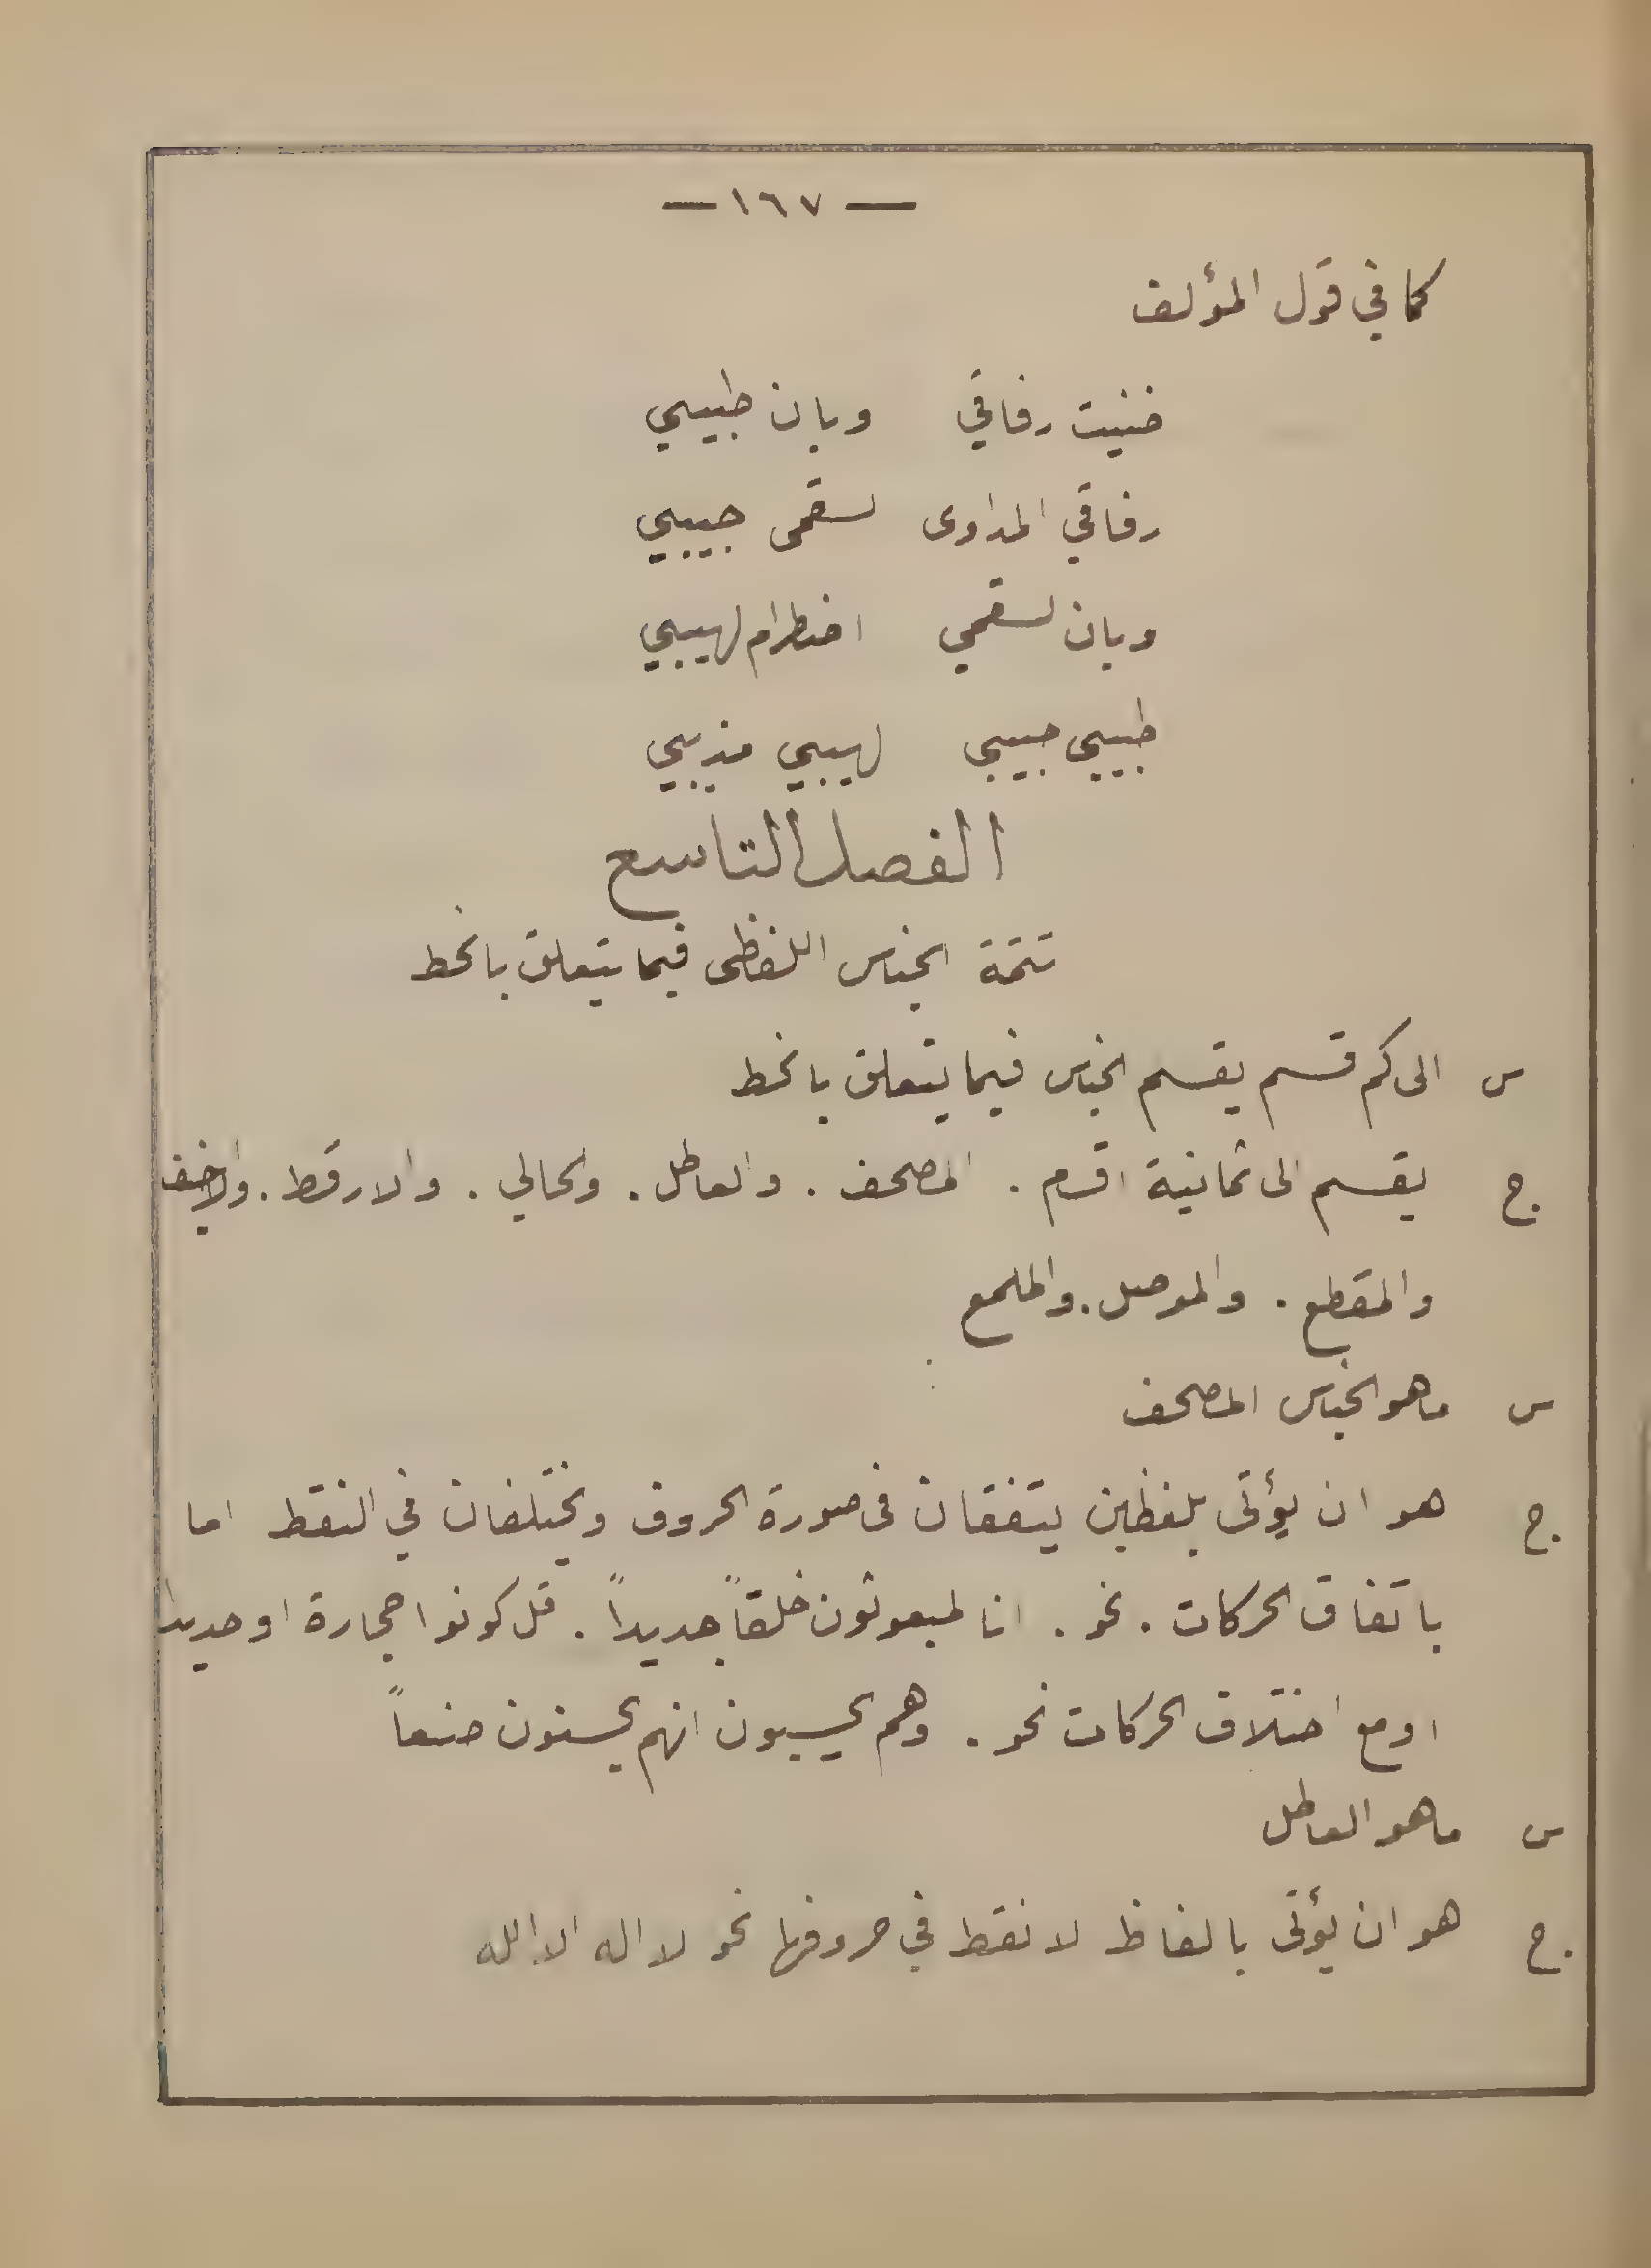 — ١٦٧ —
كما في قول المؤلف
ضنيت رفاقي وبان طبيبي
رفاقي المداوى لسقمى حبيبي
وبان لسقمي اضطرام لهيبي
طبيبي حبيبي لهيبي مذيبي
الفصل التاسع
تتمة الجناس اللفظى فيما يتعلق بالخط
س الى كم قسم يقسم الجناس فيما يتعلق بالخط
ج. يقسم الى ثمانية اقسام . المصحف . والعاطل . والحالي . والارقط . والاخيف
والمقطع . والموصل . والملمع
س ما هو الجناس المصحف
ج. هو ان يؤتى بلفظين يتفقان فى صورة الحروف ويختلفان في النقط اما
باتفاق الحركات . نحو . انا لمبعوثون خلقاً جديداً . قل كونوا حجارة او حديدا
اومع اختلاف الحركات نحو . وهم يحسبون انهم يحسنون صنعاً
س ما هو العاطل
ج. هو ان يؤتى بالفاظ لا نقط في حروفها نحو لا اله الا الله